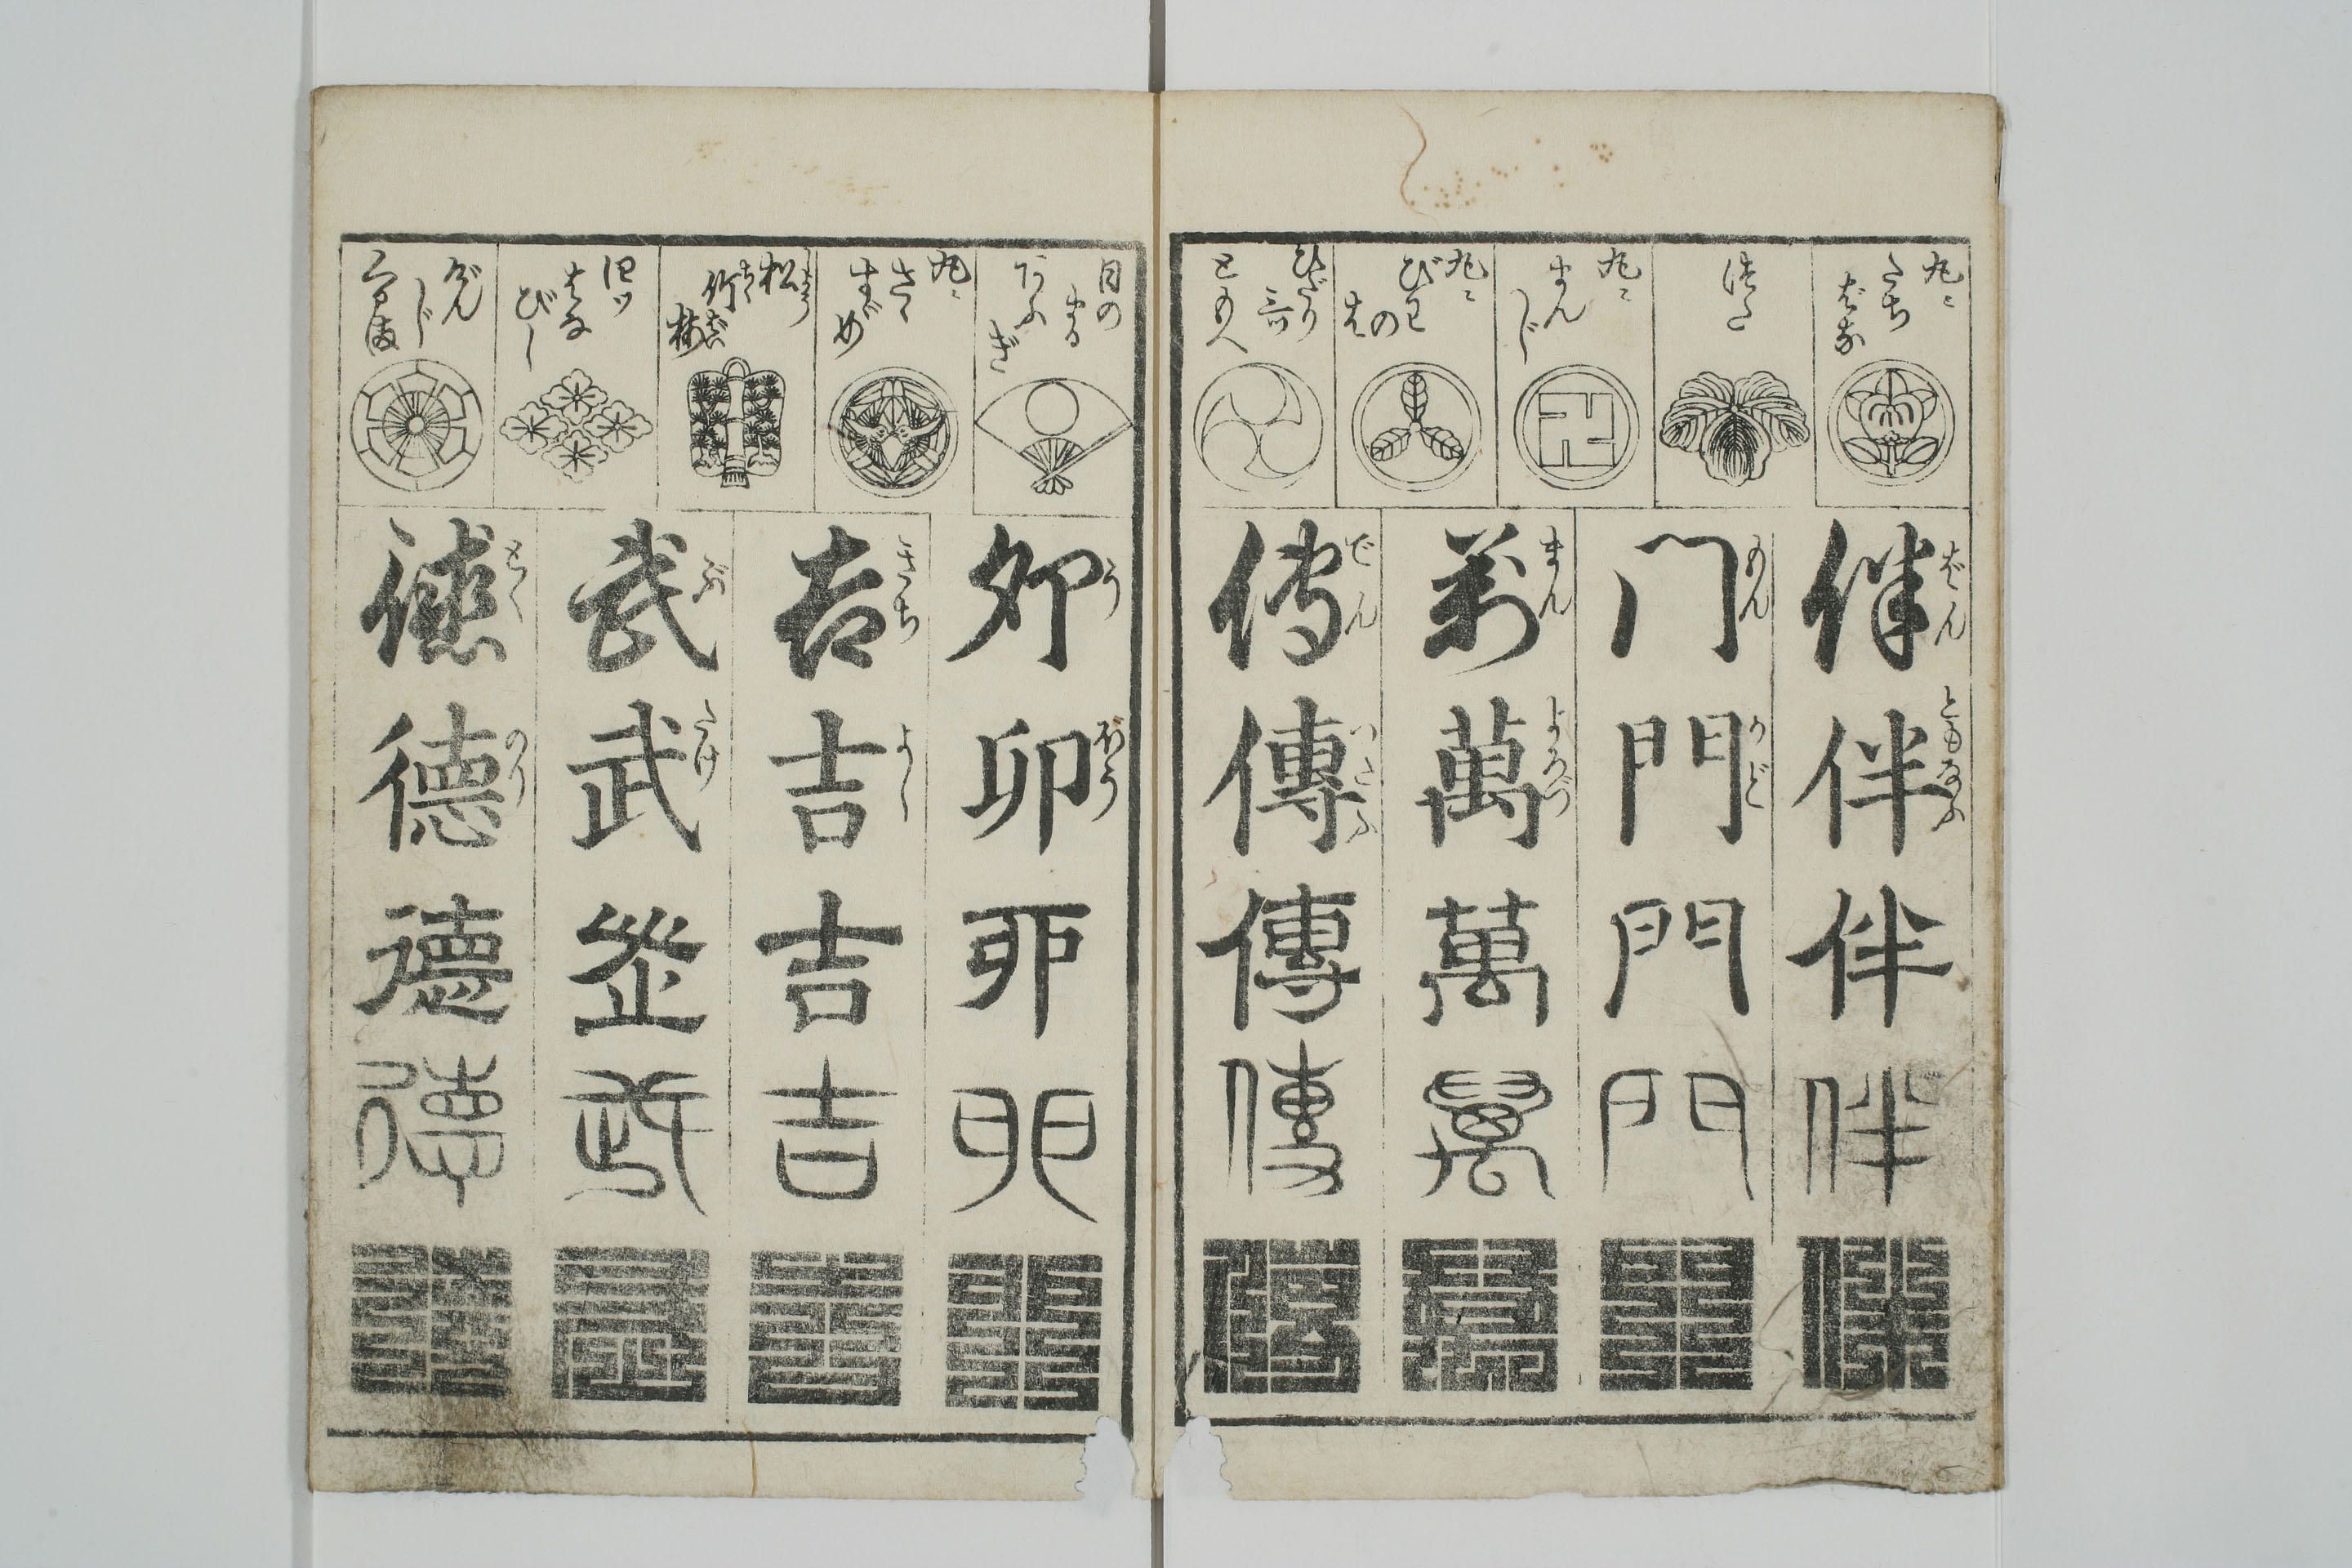 丸ニ
たち
ばな
つた
丸ニ
まん
じ
丸ニ
びわ
の
は
ひだり
三ツ
ともへ
ばん
ともなふ
伴
伴
伴
伴
伴
もん
かど
门
門
門
門
門
まん
よろづ
萬
萬
萬
萬
萬
でん
つたふ
傳
傳
傳
傳
傳
日の
まる
あふ
ぎ
丸ニ
さゝ
すゞめ
松
竹
梅
四ツ
はな
びし
げん
じ
車
う
ぼう
卯
卯
戼
卯
卯
きち
よし
吉
吉
吉
吉
吉
ぶ
たけ
武
武
武
武
とく
のり
德
德
德
德
德